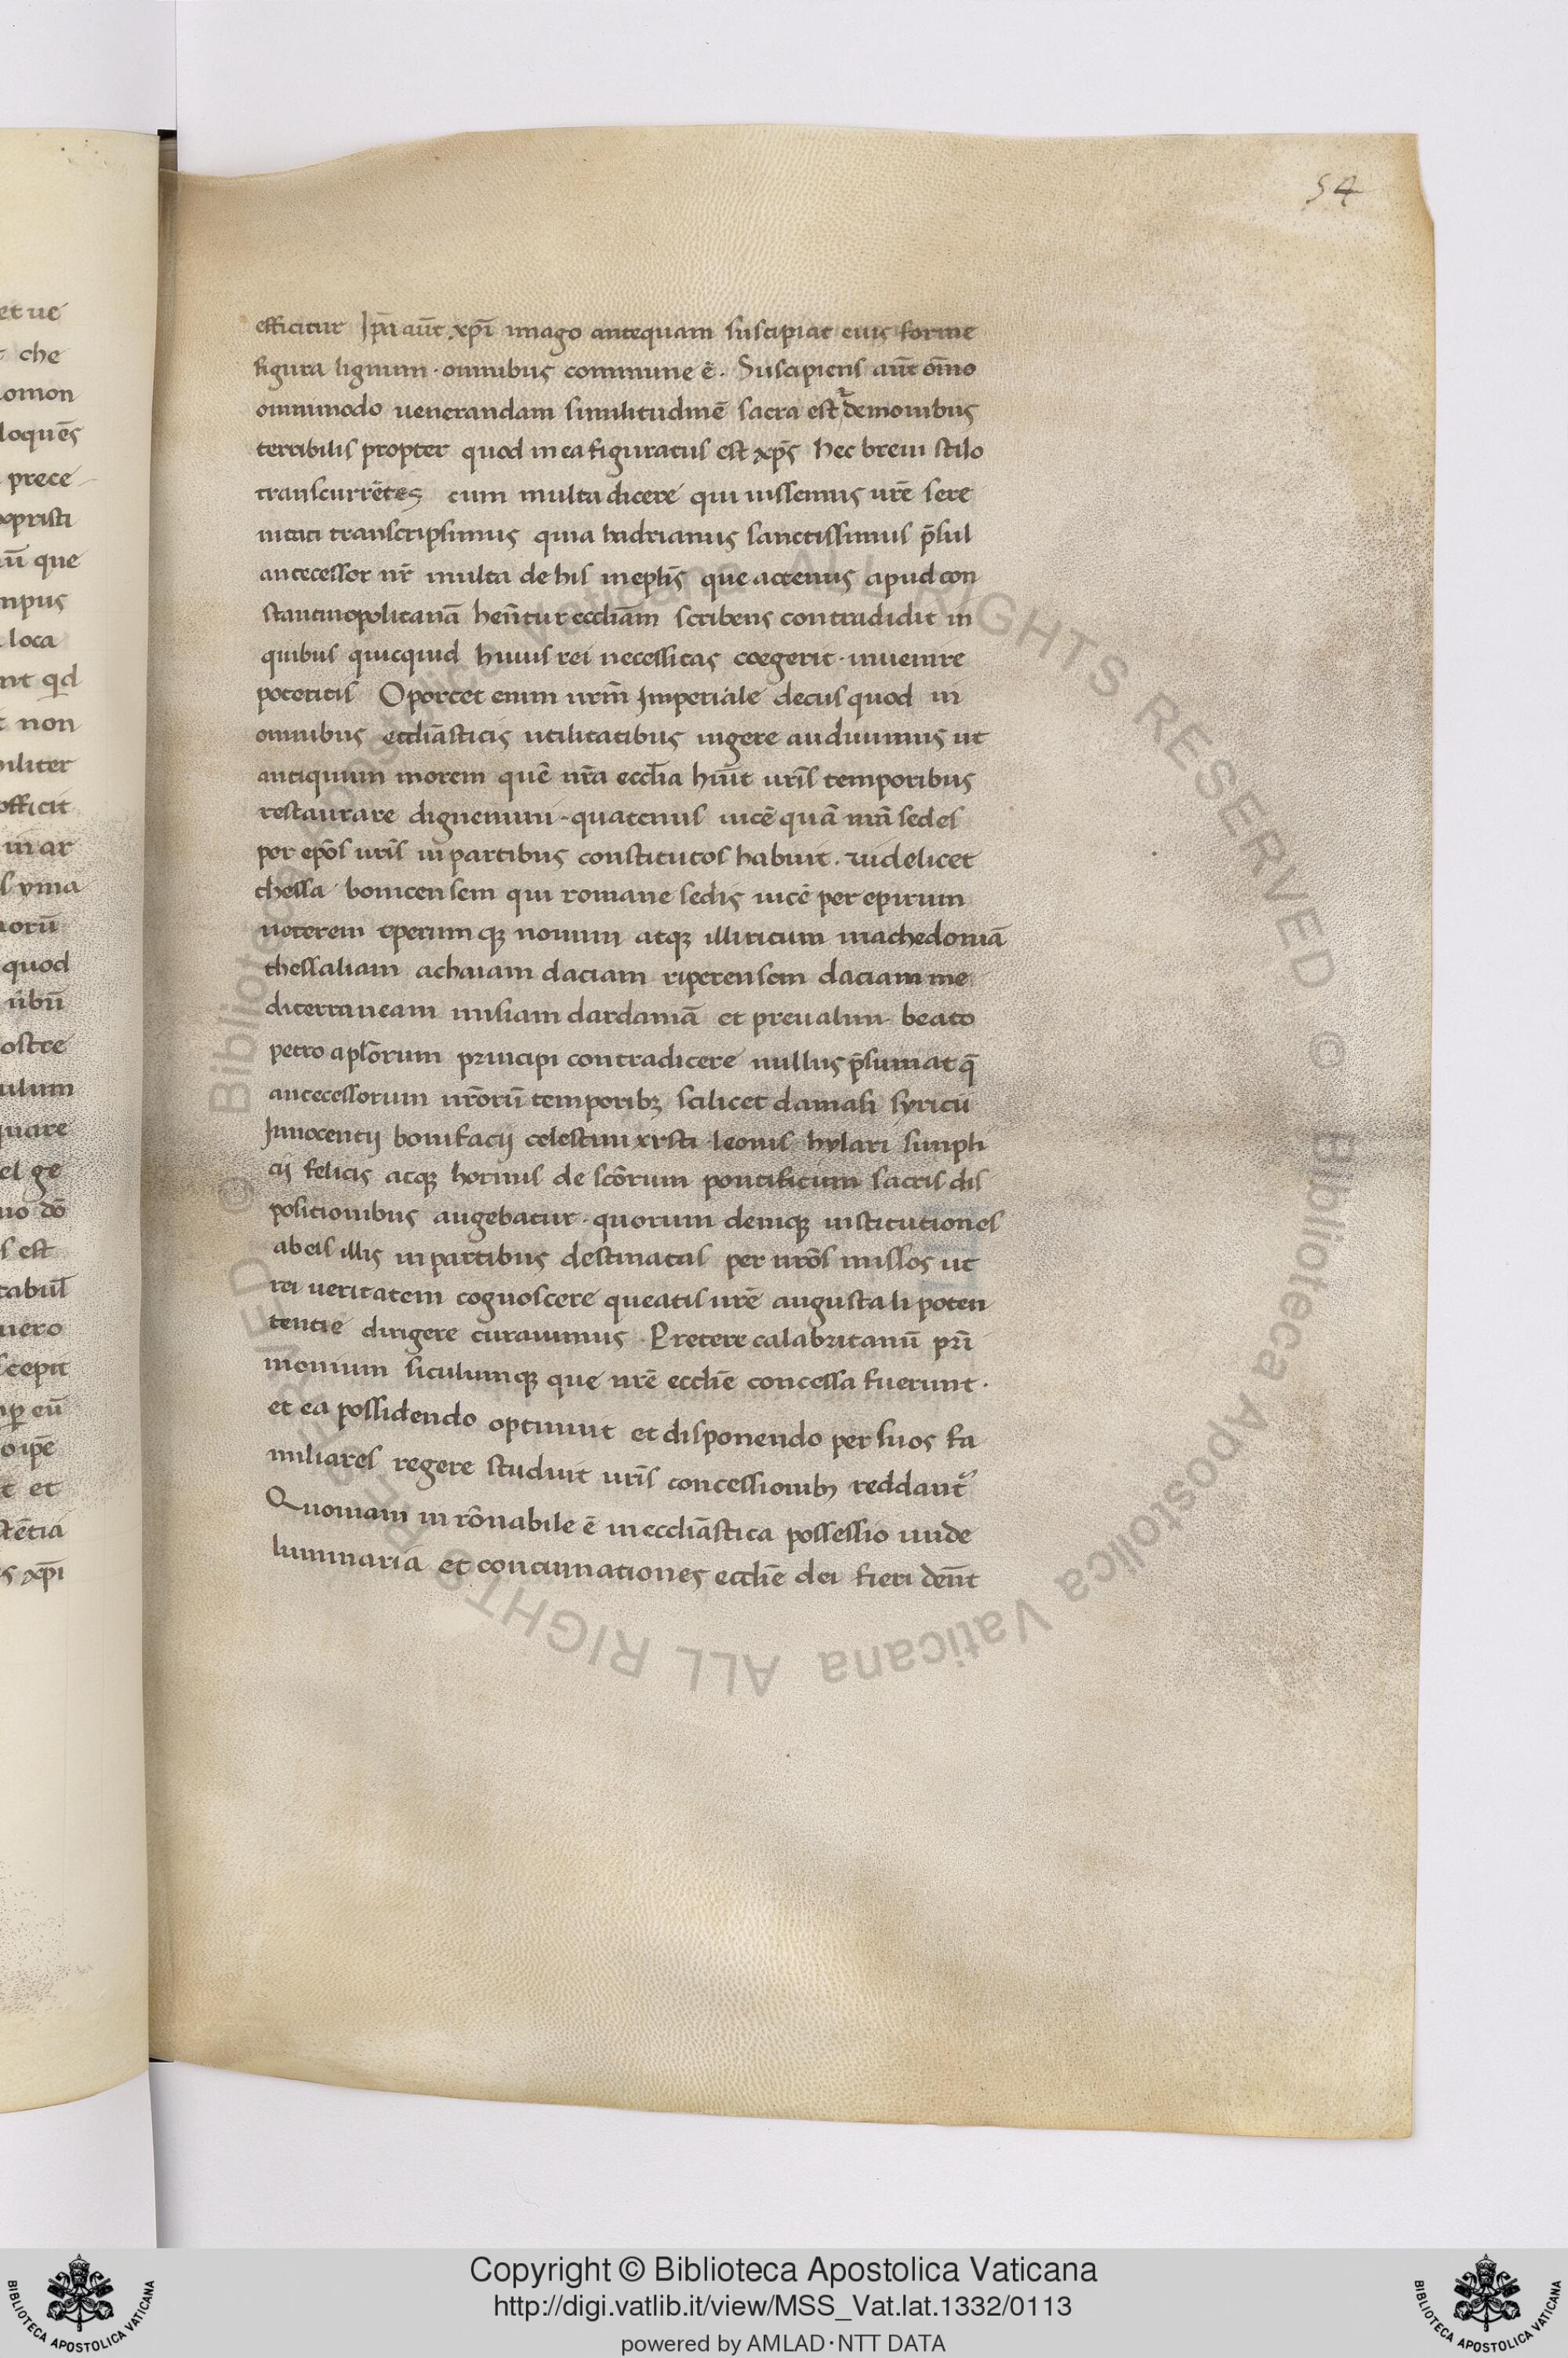 54
efficitur Ip̄a aūt xp̄i imago antequam suscipiat eius forme
figura lignum · omnibus commune ē · Suscipiens aūt om̄o
ommimodo uenerandam similitudinē sacra est demonibus
terribilis propter quod in ea figuratus est xp̄s hec breui stilo
transcurrētes cum multa dicere qui uissemus ūrē sere
nitati transcripsimus quia hadrianus sanctissimus p̄sul
antecessor n̄r multa de his ineptīs que actenus apud con
stantinopolitanā hen̄tur eccliām scribens contradidit in
quibus quicquid huius rei necessitas coegerit · inuenire
poteritis Oporcet enim ur̄m Imperiale decus quod in
omnibus ecclīasticis utilitatibus uigere audiuimus ut
antiquum morem quē nr̄a eccl̄ia hūit ur̄is temporibus
restaurare dignemini · quatenus uicē quā nr̄a sedes
per ep̄os ur̄is in partibus constitutos habuit · uidelicet
thessa bonicensem qui romane sedis uicē per epirum
ueterem eperum qz nouum atqz illiricum machedoniā
thessaliam achaiam daciam riperensem daciam me
diterraneam misiam dardaniā et preualim · beato
petro apl̄orum principi contradicere nullus p̄sumat q̄
antecessorum nr̄orū temporibz scilicet damasi syricii
Innocentij bonifacij celestini xysti leonis hylari simpli
cij felicis atqz hormis de scōrum pontificum sacris dis
positionibus augebatur · quorum deniqz institutiones
ab eis illis in partibus destinatas per nr̄os missos ut
rei ueritatem cognoscere queatis ur̄e augustali poten
tentie dirigere curauimus · Preterea calabritanū pr̄i
monium siculumqz que nr̄e eccl̄ie concessa fuerunt ·
et ea possidendo optinuit et disponendo per suos fa
miliares regere studuit ur̄is concessionibz reddant᷑
Quoniam in rōnabile ē in eccliāstica possessio unde
luminaria et concinnationes eccl̄ie dei fieri den̄t
et ue
che
omon
loquēs
prece
xpristi
ū que
mpus
loca
nt qd
non
iliter
officit
in ar
s vina
orū
quod
ostre
ulum
el ge
s est
uero
cepit
eū
o ip̄e
t et
s xp̄i
Biblioteca Apostolica Vaticana ALL RIGHTS RESERVED ©
Copyright © Biblioteca Apostolica Vaticana
http://digi.vatlib.it/view/MSS_Vat.lat.1332/0113
powered by AMLAD·NTT DATA
BIBLIOTECA APOSTOLICA VATICANA
BIBLIOTECA APOSTOLICA VATICANA